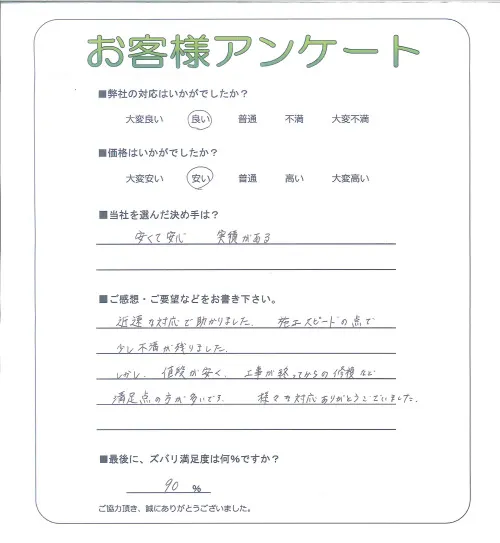 お客様アンケート
■弊社の対応はいかがでしたか？
大変良い 良い 普通 不満 大変不満
■価格はいかがでしたか？
大変安い 安い 普通 高い 大変高い
■当社を選んだ決め手は？
安くて安心 実積がある
■ご感想・ご要望などをお書き下さい。
迅速な対応で助かりました. 施工スピードの点で
少し不満が残りました.
しかし、値段が安く、工事が終ってからの修積など
満足点の方が多いです. 様々な対応ありがとうございました.
■最後に、ズバリ満足度は何％ですか？
90 %
ご協力頂き、誠にありがとうございました。